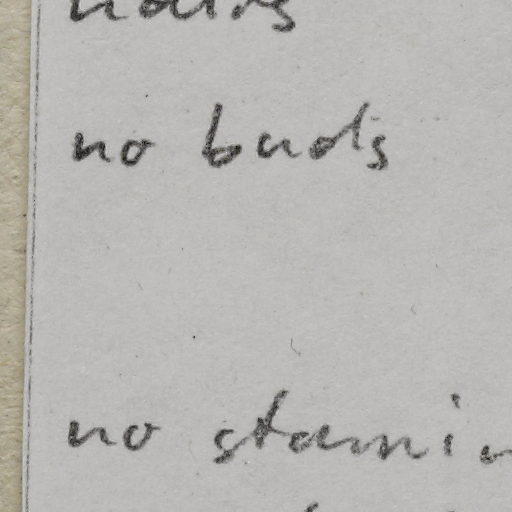 no buds
no stamin